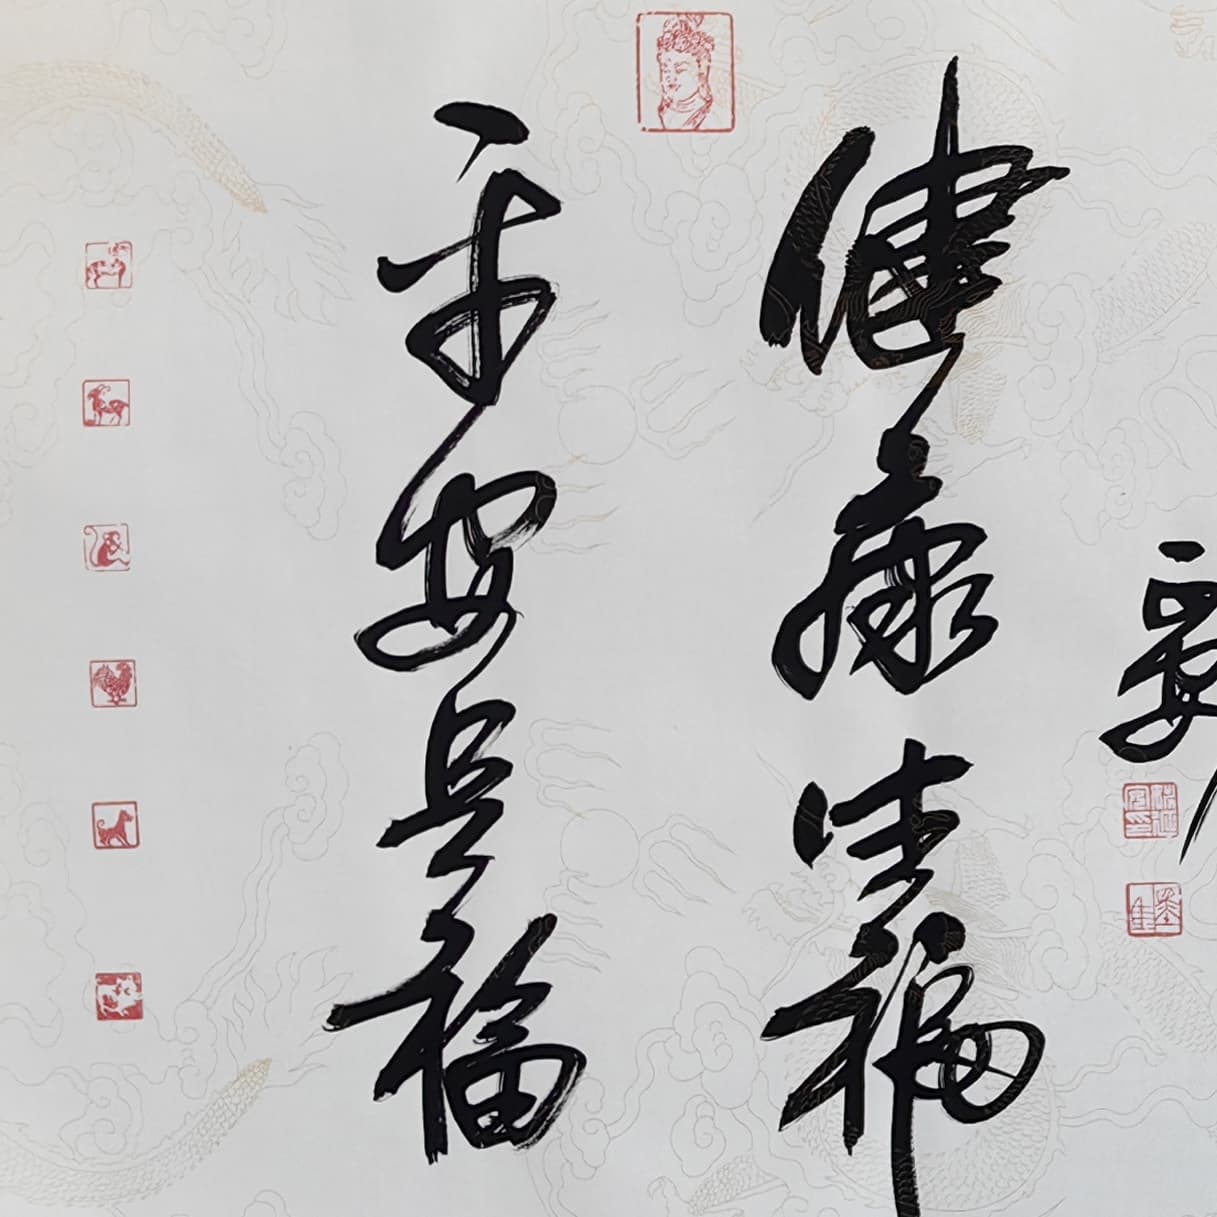 健康是福
平安是福